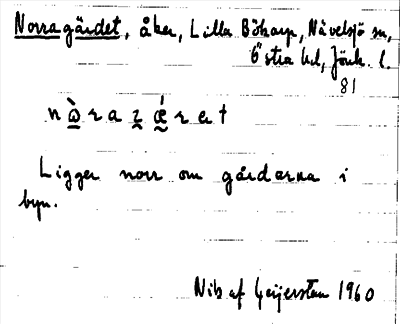 Norragärdet, åker, Lilla Bökarp, Nävelsjö sn,
Östra hd, Jönk. l.
81
Ligger norr om gårdarna i
byn.
Nils af Geijerstam 1960